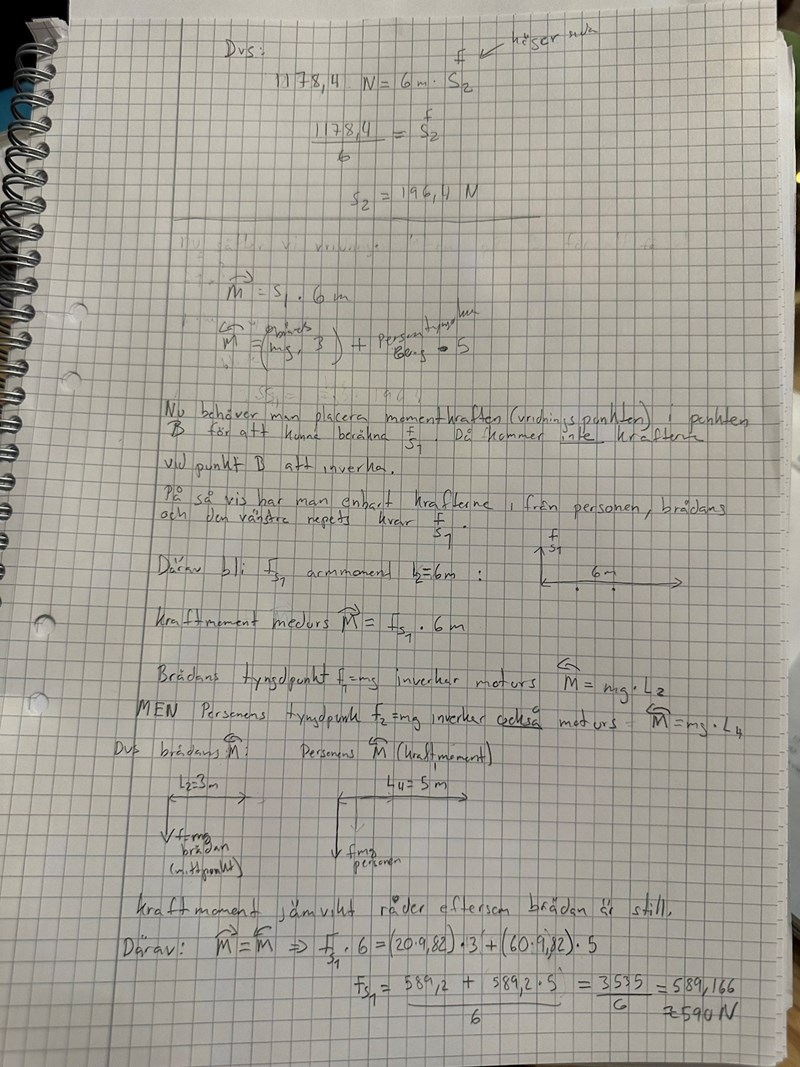 Dvs:
höger sida
1178,4 N = 6 m · S₂ f
1178,4 / 6 = S₂ f
S₂ = 196,4 N
M = S₁ · 6 m
M = (mg · 3) + person tyngd · 5
Nu behöver man placera momentkraften (vridningspunkten) i punkten
B för att kunne beräkna f S₁. Då kommer inte krafterne
vid punkt B att inverka.
På så vis har man enbart krafterne, från personen, brådans
och den vänstra repets kvar f S₁.
f S₁
Därav bli f S₁ armmoment L₂=6m :
6m
Kraftmoment medurs M = f S₁ · 6 m
Brådans tyngdpunkt f₁=mg inverkar moturs M = mg · L₂
MEN Personens tyngdpunk f₂=mg inverkar också moturs M = mg · L₄
Dvs brådans M: Personens M (kraftmoment)
L₂=3m L₄=5m
f=mg
brådan
(mittpunkt)
fmg
personen
Kraftmoment jämvikt råder eftersom brådan är still.
Därav: M = M ⇒ f S₁ · 6 = (20·9,82) · 3 + (60·9,82) · 5
f S₁ = (589,2 + 589,2 · 5) / 6 = 3535 / 6 = 589,166
≈ 590 N